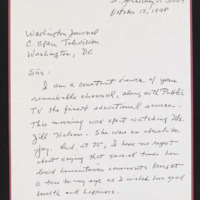 October 12, 1998
Washington Journal
C-Span Television
Washington, DC
Sir:
I am a constant viewer of your
remarkable channel, along with Public
TV the finest educational sources.
This morning was start watching Ms.
Jill Nelson. She was an absolute
joy. And at 75, I have no regrets
about saying that several times her
humanitarian comments brought
a tear to my eye as I wished her good
health and happiness.